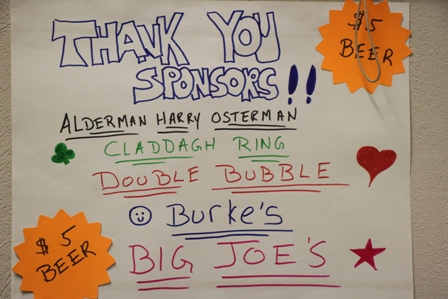 THANK YOU
SPONSORS!!
$5
BEER
ALDERMAN HARRY OSTERMAN
CLADDAGH RING
DOUBLE BUBBLE
Burke's
BIG JOE'S
$5
BEER